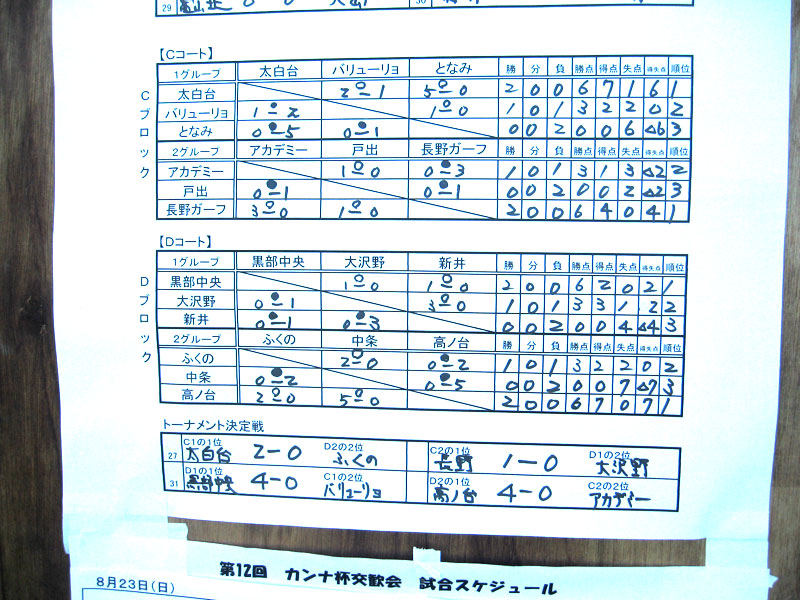 29
30
【Cコート】
Cブロック
1グループ 太白台 バリューリョ となみ 勝 分 負 勝点 得点 失点 得失点 順位
太白台 2-1 5-0 2 0 0 6 7 1 6 1
バリューリョ 1-2 1-0 1 0 1 3 2 2 0 2
となみ 0-5 0-1 0 0 2 0 0 6 △6 3
2グループ アカデミー 戸出 長野ガーフ 勝 分 負 勝点 得点 失点 得失点 順位
アカデミー 1-0 0-3 1 0 1 3 1 3 △2 2
戸出 0-1 0-1 0 0 2 0 0 2 △2 3
長野ガーフ 3-0 1-0 2 0 0 6 4 0 4 1
【Dコート】
Dブロック
1グループ 黒部中央 大沢野 新井 勝 分 負 勝点 得点 失点 得失点 順位
黒部中央 1-0 1-0 2 0 0 6 2 0 2 1
大沢野 0-1 3-0 1 0 1 3 3 1 2 2
新井 0-1 0-3 0 0 2 0 0 4 △4 3
2グループ ふくの 中条 高ノ台 勝 分 負 勝点 得点 失点 得失点 順位
ふくの 2-0 0-2 1 0 1 3 2 2 0 2
中条 0-2 0-5 0 0 2 0 0 7 △7 3
高ノ台 2-0 5-0 2 0 0 6 7 0 7 1
トーナメント決定戦
27 C1の1位 太白台 2-0 D2の2位 ふくの C2の1位 長野 1-0 D1の2位 大沢野
31 D1の1位 黒部中央 4-0 C1の2位 バリューリョ D2の1位 高ノ台 4-0 C2の2位 アカデミー
第12回 カンナ杯交歓会 試合スケジュール
8月23日(日)